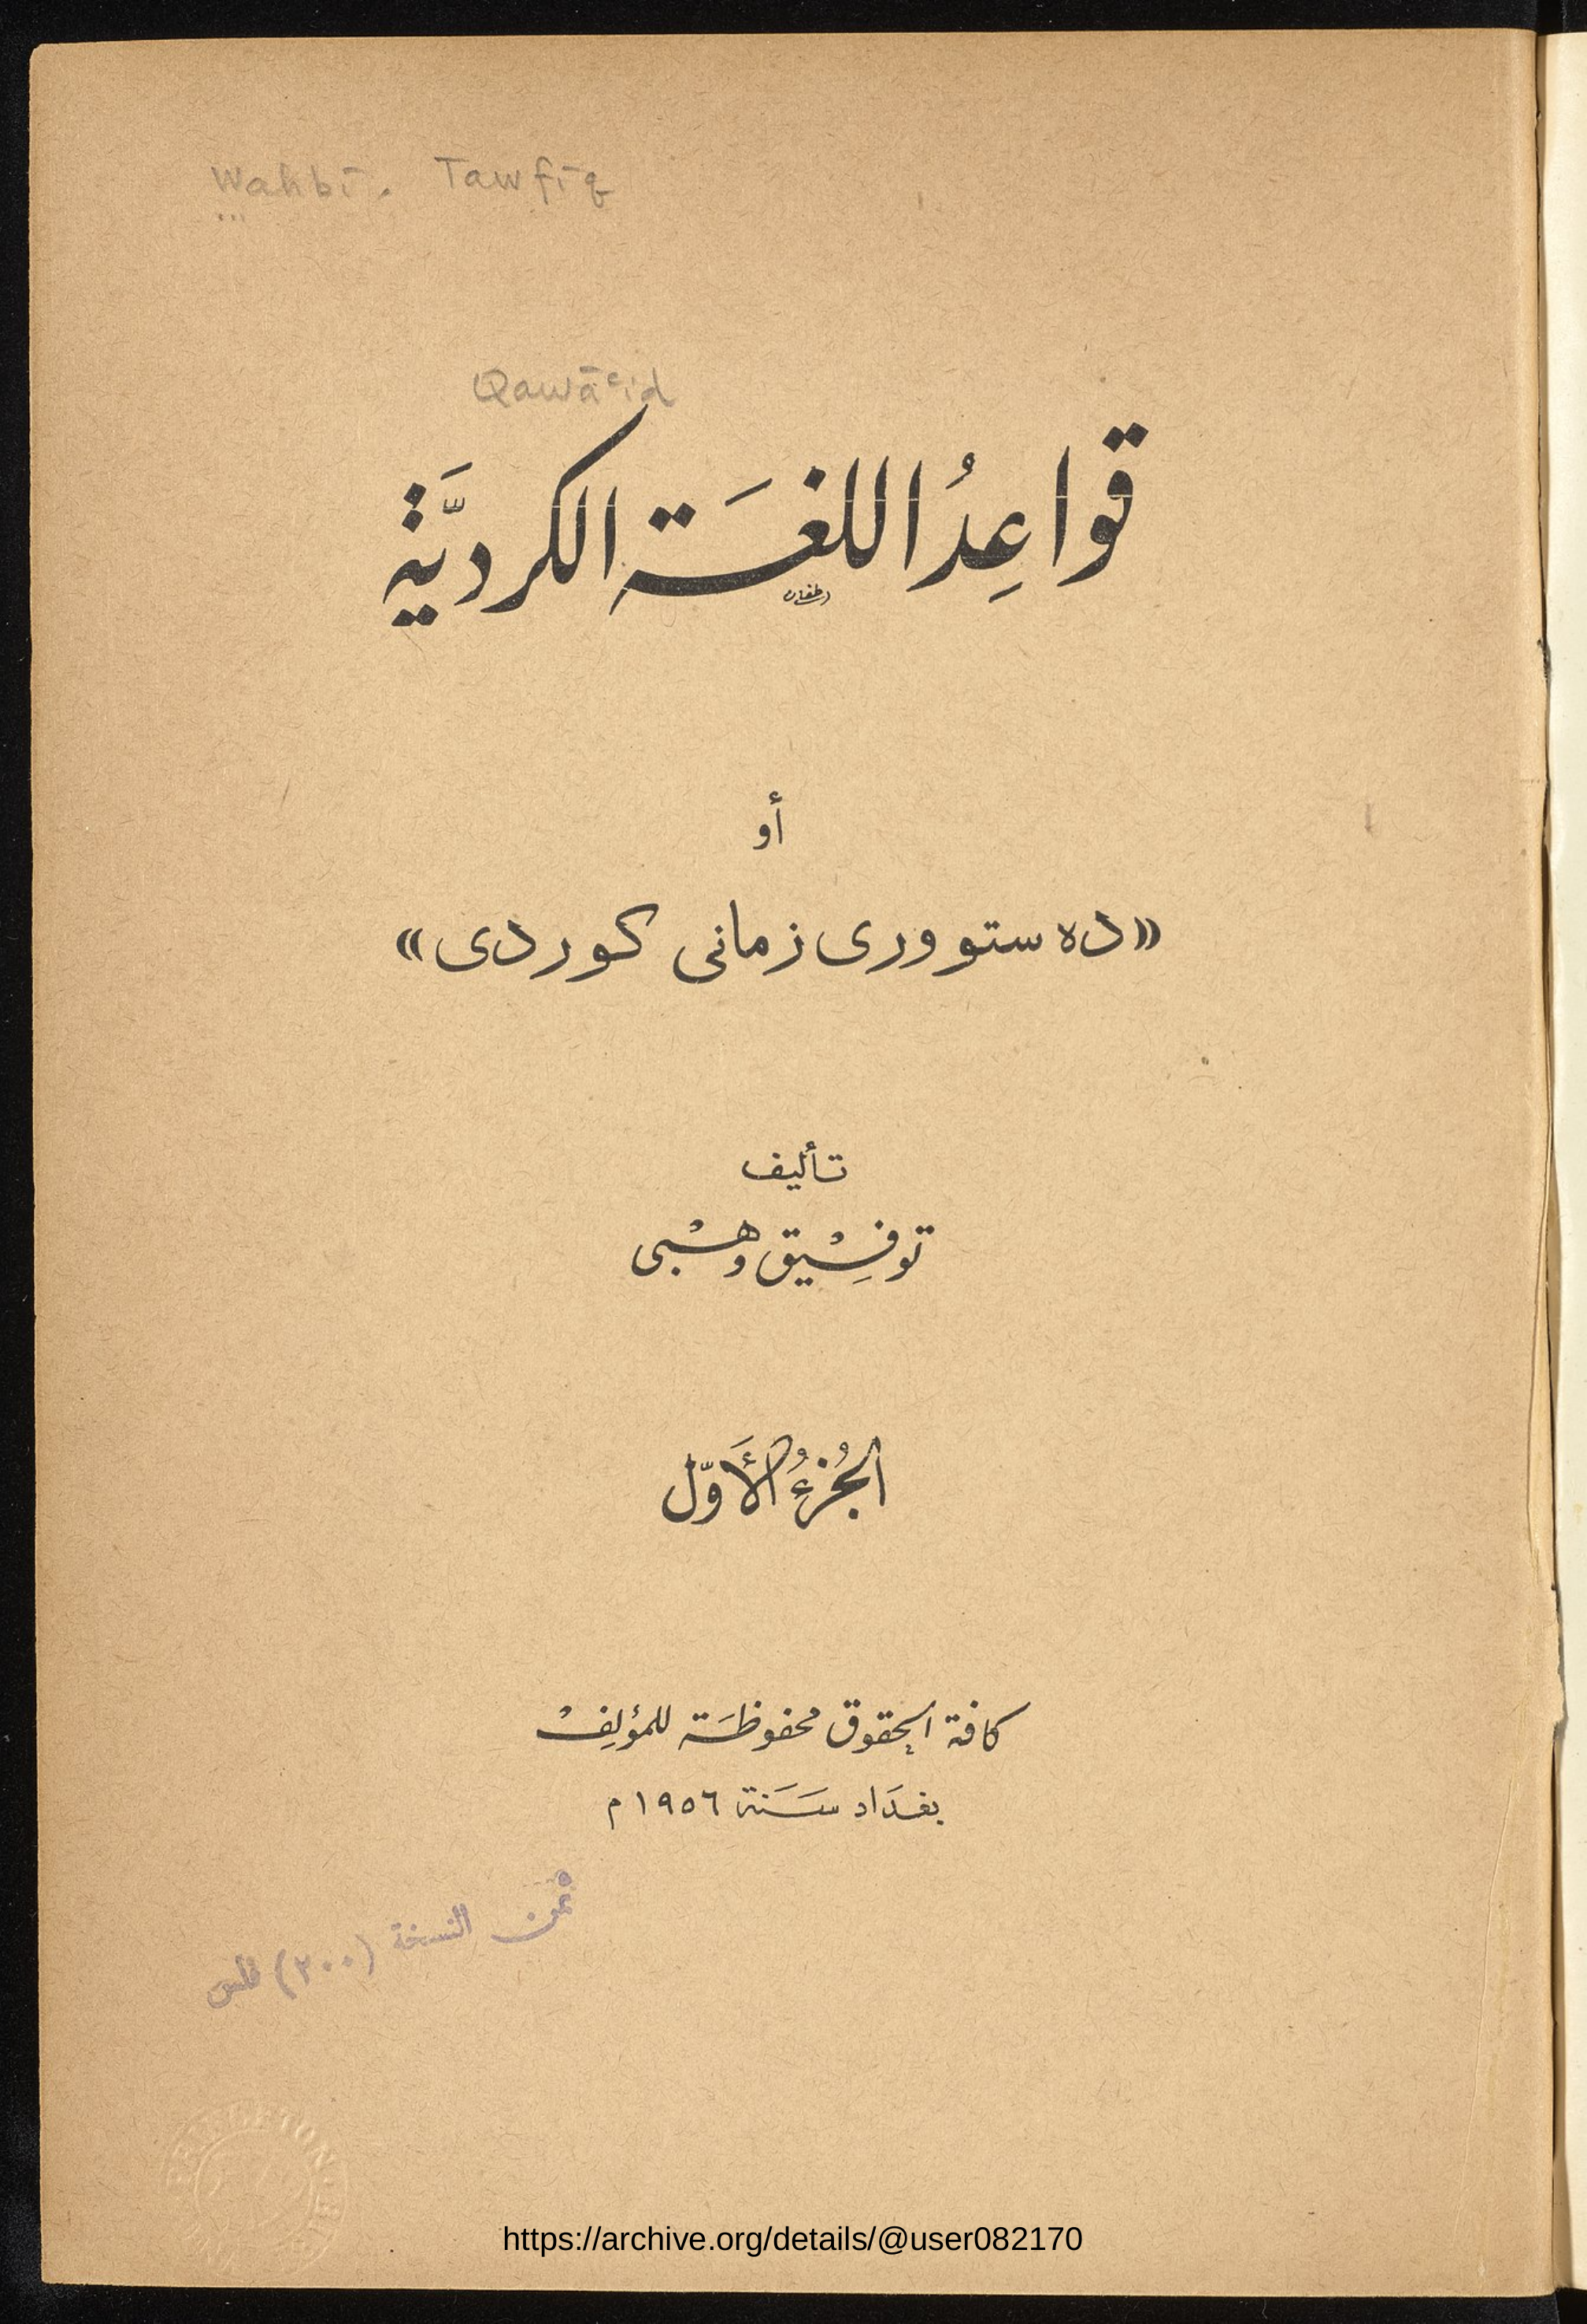 Wahbī. Tawfīq
Qawāʿid
قواعِدُ اللغَة الكرديَّة
أو
«ده ستووری زمانی کوردی»
تأليف
توفِيْق وهْبی
الجُزءُ الأَوّل
كافة الحقوق محفوظَة للمؤلِفْ
بغدَاد سَنَة ١٩٥٦ م
ثمن النسخة (٢٠٠) فلس
PRINCETON
https://archive.org/details/@user082170